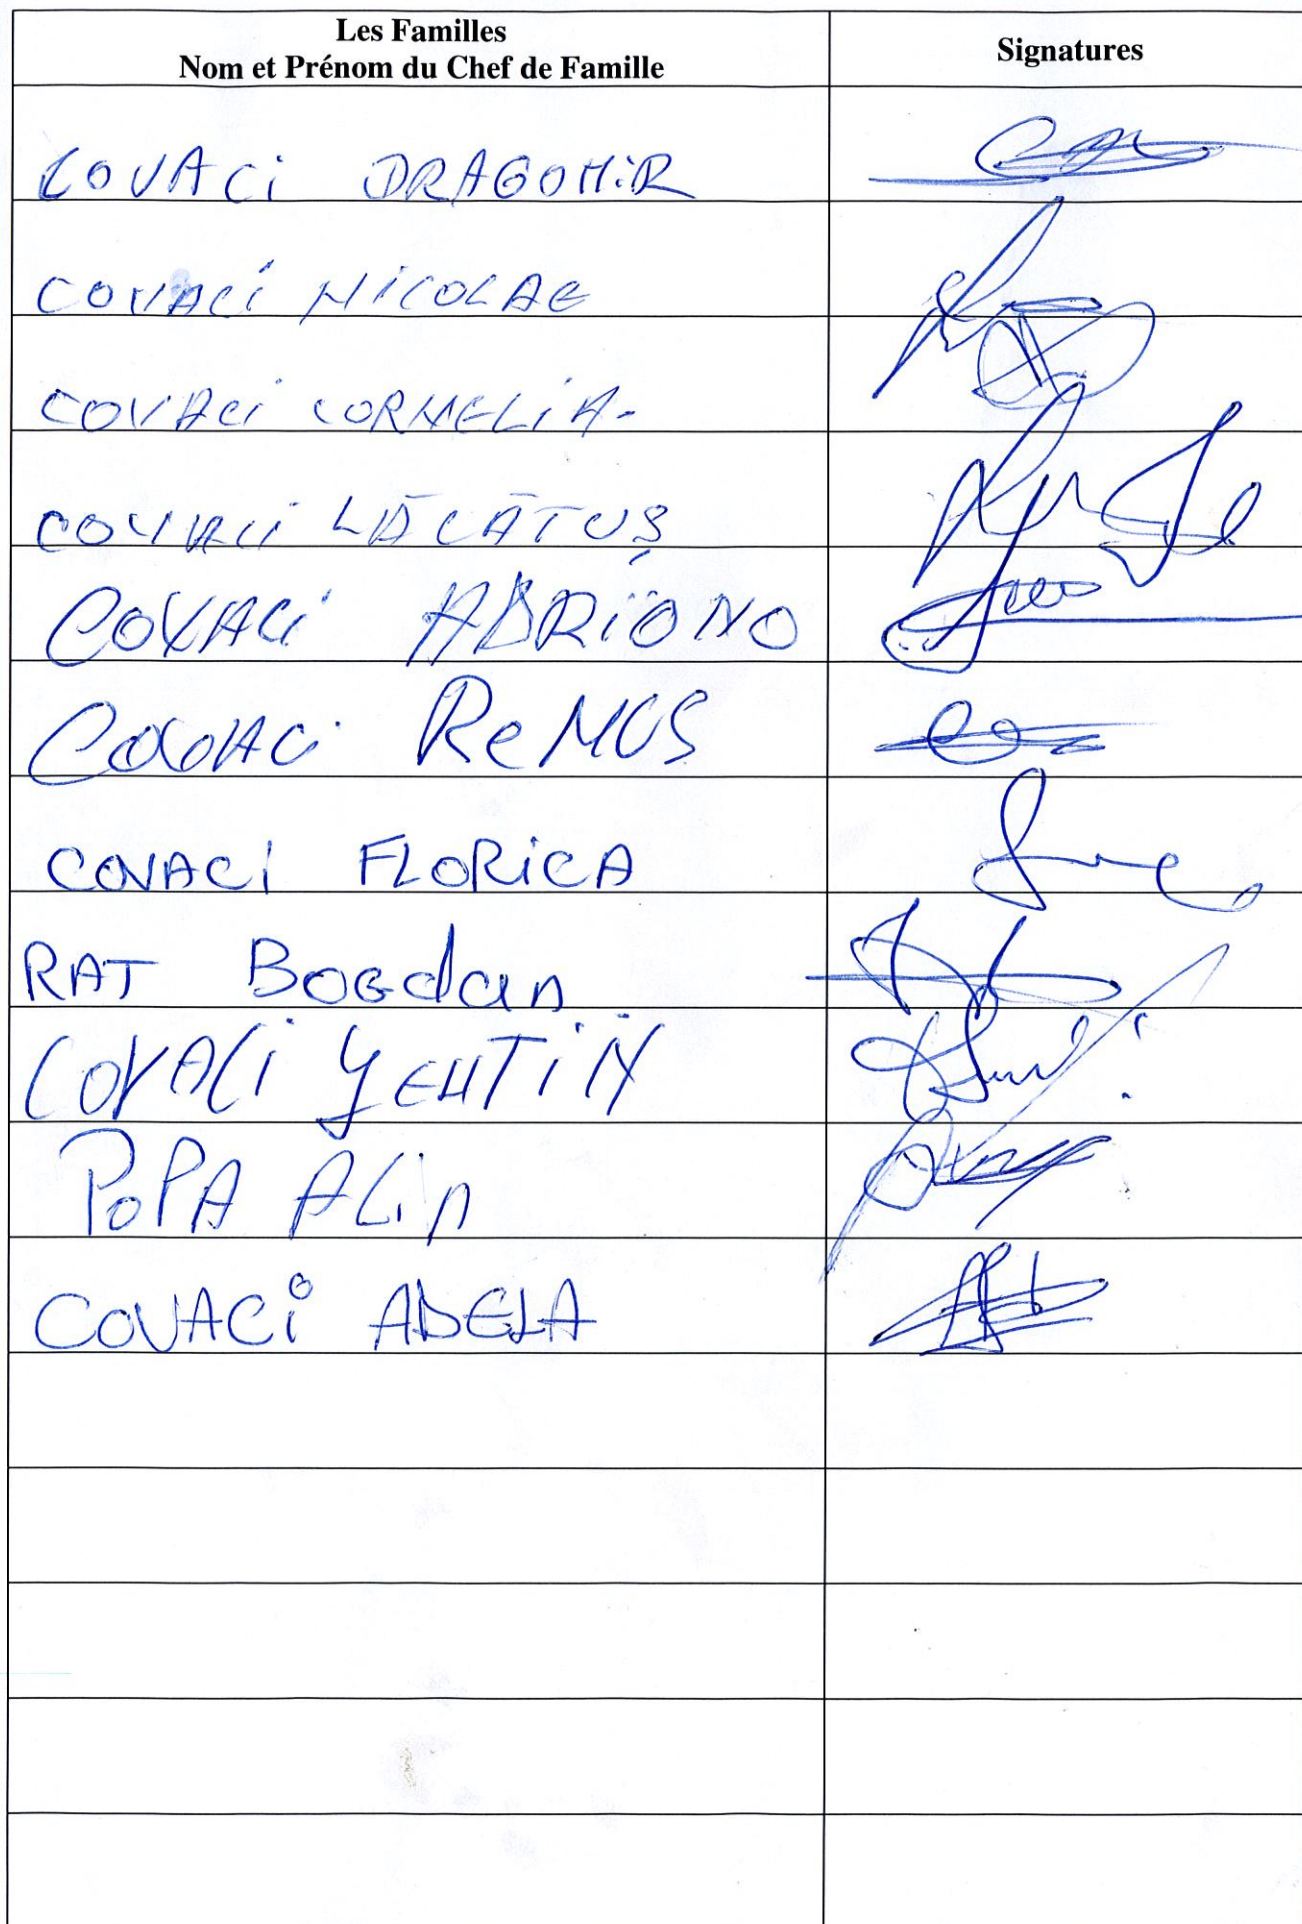 Les Familles
Nom et Prénom du Chef de Famille
Signatures
COVACi DRAGOMiR
COVACi NiCOLAE
COVACi CORNELiA-
COVACi LĂCĂTUŞ
COVACi ADRiONO
COVACi ReMUS
COVACI FLORiCA
RAT BOGdan
COVACi
POPA ALin
COVACi ADELA